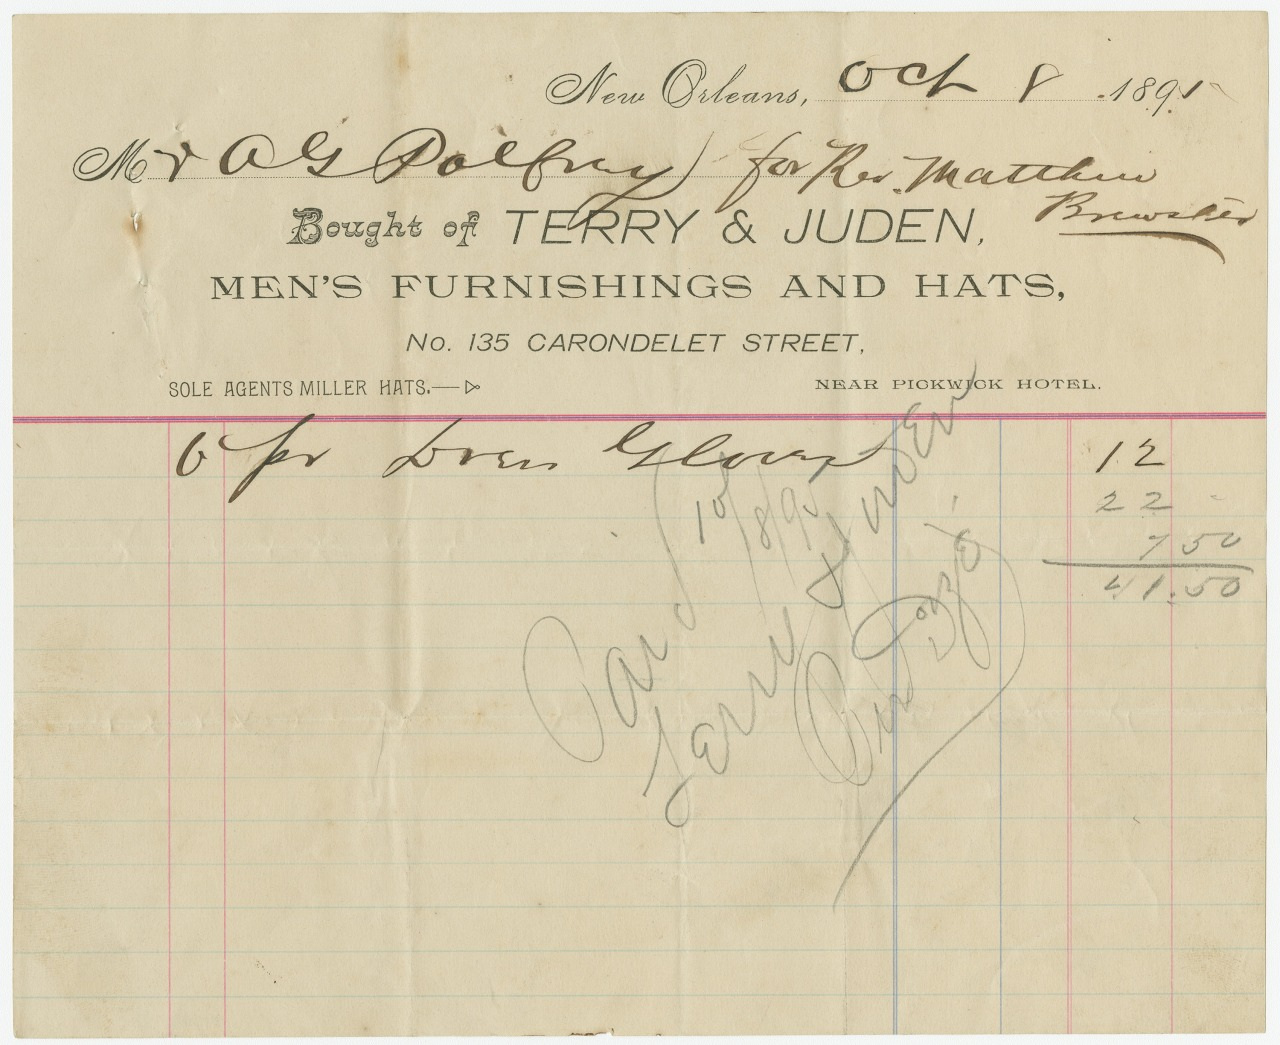 New Orleans, Oct 8 1891
Mr A G Palfrey for Rev. Matthew
Brewster
Bought of TERRY & JUDEN,
MEN'S FURNISHINGS AND HATS,
No. 135 CARONDELET STREET,
SOLE AGENTS MILLER HATS.
NEAR PICKWICK HOTEL.
6 pr Dress Gloves 12
22 -
7 50
41.50
Paid 10/8/91
Terry & Juden
Per